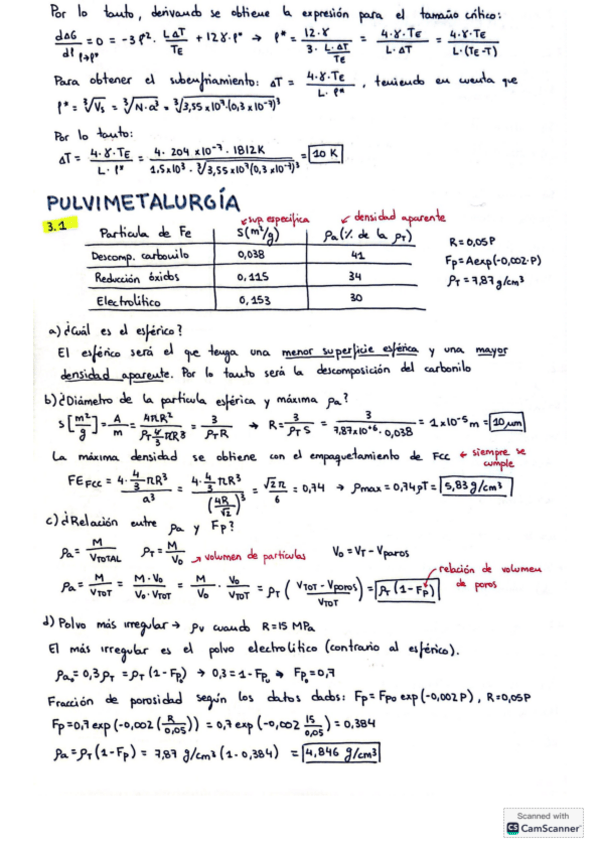 Por lo tanto, derivando se obtiene la expresión para el tamaño crítico:
dΔG/dl |l→l* = 0 = -3l². LΔT/TE + 12γ·l* → l* = 12·γ / (3. L·ΔT/TE) = 4·γ·TE / L·ΔT = 4·γ·TE / L·(TE-T)
Para obtener el subenfriamiento: ΔT = 4·γ·TE / L·l*, teniendo en cuenta que
l* = ∛Vs = ∛N·a³ = ∛3,55x10⁷(0,3x10⁻⁷)³
Por lo tanto:
ΔT = 4·γ·TE / L·l* = 4·204x10⁻⁷·1812K / 1.5x10³·∛3,55x10⁷(0,3x10⁻⁷)³ = 10 K
PULVIMETALURGÍA
3.1
sup. específica
densidad aparente
Partícula de Fe S(m²/g) ρa(% de la ρT)
Descomp. carbonilo 0,038 41
Reducción óxidos 0,115 34
Electrolítico 0,153 30
R=0,05P
Fp=Aexp(-0,002·P)
ρT=7,87g/cm³
a) ¿Cuál es el esférico?
El esférico será el que tenga una menor superficie esférica y una mayor
densidad aparente. Por lo tanto será la descomposición del carbonilo
b) ¿Diámetro de la partícula esférica y máxima ρa?
S[m²/g] = A/m = 4πR² / ρT 4/3 πR³ = 3/ρTR → R = 3/ρT S = 3 / 7,87x10⁺⁶·0,038 = 1x10⁻⁵m = 10 μm
La máxima densidad se obtiene con el empaquetamiento de FCC ← siempre se cumple
FE FCC = 4·4/3 πR³ / a³ = 4·4/3 πR³ / (4R/√2)³ = √2π/6 = 0,74 → ρmax = 0,74ρT = 5,83 g/cm³
c) ¿Relación entre ρa y Fp?
ρa = M/VTOTAL ρT = M/V0 → volumen de partículas V0 = VT - Vporos
ρa = M/VTOT = M·V0 / V0·VTOT = M/V0 · V0/VTOT = ρT (VTOT - Vporos / VTOT) = ρT (1-Fp) relación de volumen de poros
d) Polvo más irregular → ρv cuando R=15 MPa
El más irregular es el polvo electrolítico (contrario al esférico).
ρa0 = 0,3ρT = ρT (1-Fp) → 0,3 = 1-Fp0 → Fp0 = 0,7
Fracción de porosidad según los datos dados: Fp = Fp0 exp(-0,002P), R=0,05P
Fp = 0,7 exp(-0,002(R/0,05)) = 0,7 exp(-0,002 15/0,05) = 0,384
ρa = ρT (1-Fp) = 7,87 g/cm³ (1-0,384) = 4,846 g/cm³
Scanned with
CS CamScanner